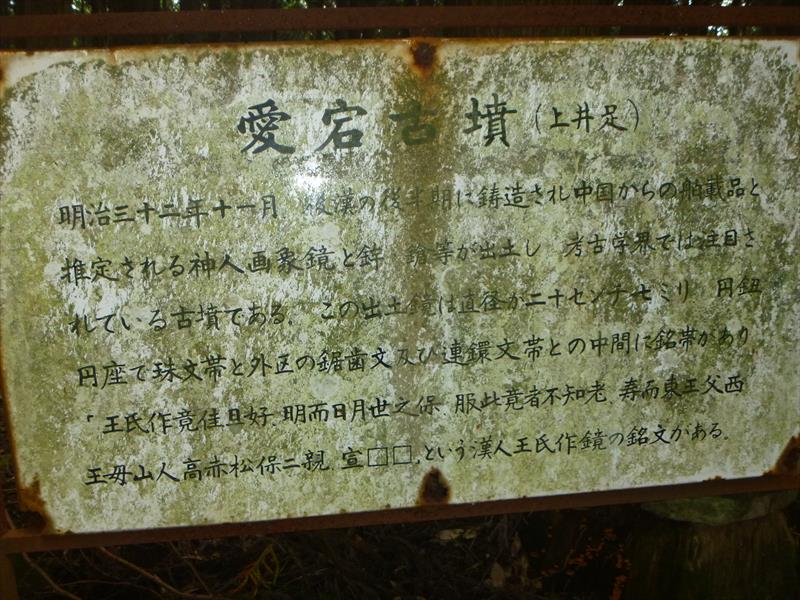 愛宕古墳(上井足)
明治三十二年十一月 後漢の後半期に鋳造され中国からの舶載品と
推定される神人画象鏡と鉾 鎗等が出土し 考古学界では注目さ
れている古墳である。この出土鏡は直径が二十センチ七ミリ 円鈕
円座で珠文帯と外区の鋸歯文及び連鐶文帯との中間に銘帯があり
「王氏作竟佳且好.明而日月世之保.服此竟者不知老.寿而東王父西
王母山人高赤松保二親.宣□□」という漢人王氏作鏡の銘文がある。